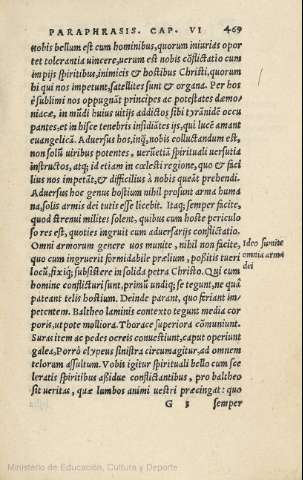 PARAPHRASIS. CAP. VI 469
nobis bellum est cum hominibus, quorum iniurias opor
tet tolerantia uincere, uerum est nobis cõflictatio cum
impijs spiritibus, inimicis & hostibus Christi, quorum
hi qui nos impetunt, satellites sunt & organa. Per hos
è sublimi nos oppugnãt principes ac potestates dæmo-
niacæ, in mũdi huius uitijs addictos sibi tyrãnidẽ occu
pantes, et in hisce tenebris insidiãtes ijs, qui lucẽ amant
euangelicã. Aduersus hos, inq̃, nobis colluctandum est,
non solũ uiribus potentes, uerũetiã spirituali uersutia
instructos, atq; id etiam in cælesti regione, quo & faci
lius nos impetãt, & difficilius à nobis queãt prehendi.
Aduersus hoc genus hostium nihil prosunt arma huma
na, solis armis dei tutis esse licebit. Itaq; semper facite,
quod strenui milites solent, quibus cum hoste periculo
so res est, quoties ingruit cum aduersarijs conflictatio.
Omni armorum genere uos munite, nihil non facite,
Ideo sumite
omnia arma
dei
quo cum ingruerit formidabile prælium, possitis tueri
locũ, fixiq; subsistere in solida petra Christo. Qui cum
homine conflicturi sunt, primũ undiq; se tegunt, ne quà
pateant telis hostium. Deinde parant, quo feriant im-
petentem. Baltheo laminis contexto tegunt media cor
poris, ut pote molliora. Thorace superiora cõmuniunt.
Suras item ac pedes ocreis conuestiunt, caput operiunt
galea, Porrò clypeus sinistra circumagitur, ad omnem
telorum assultum. Vobis igitur spirituali bello cum sce
leratis spiritibus assidue conflictantibus, pro baltheo
sit ueritas, quæ lumbos animi uestri præcingat: quo
G 3 semper
Ministerio de Educación, Cultura y Deporte